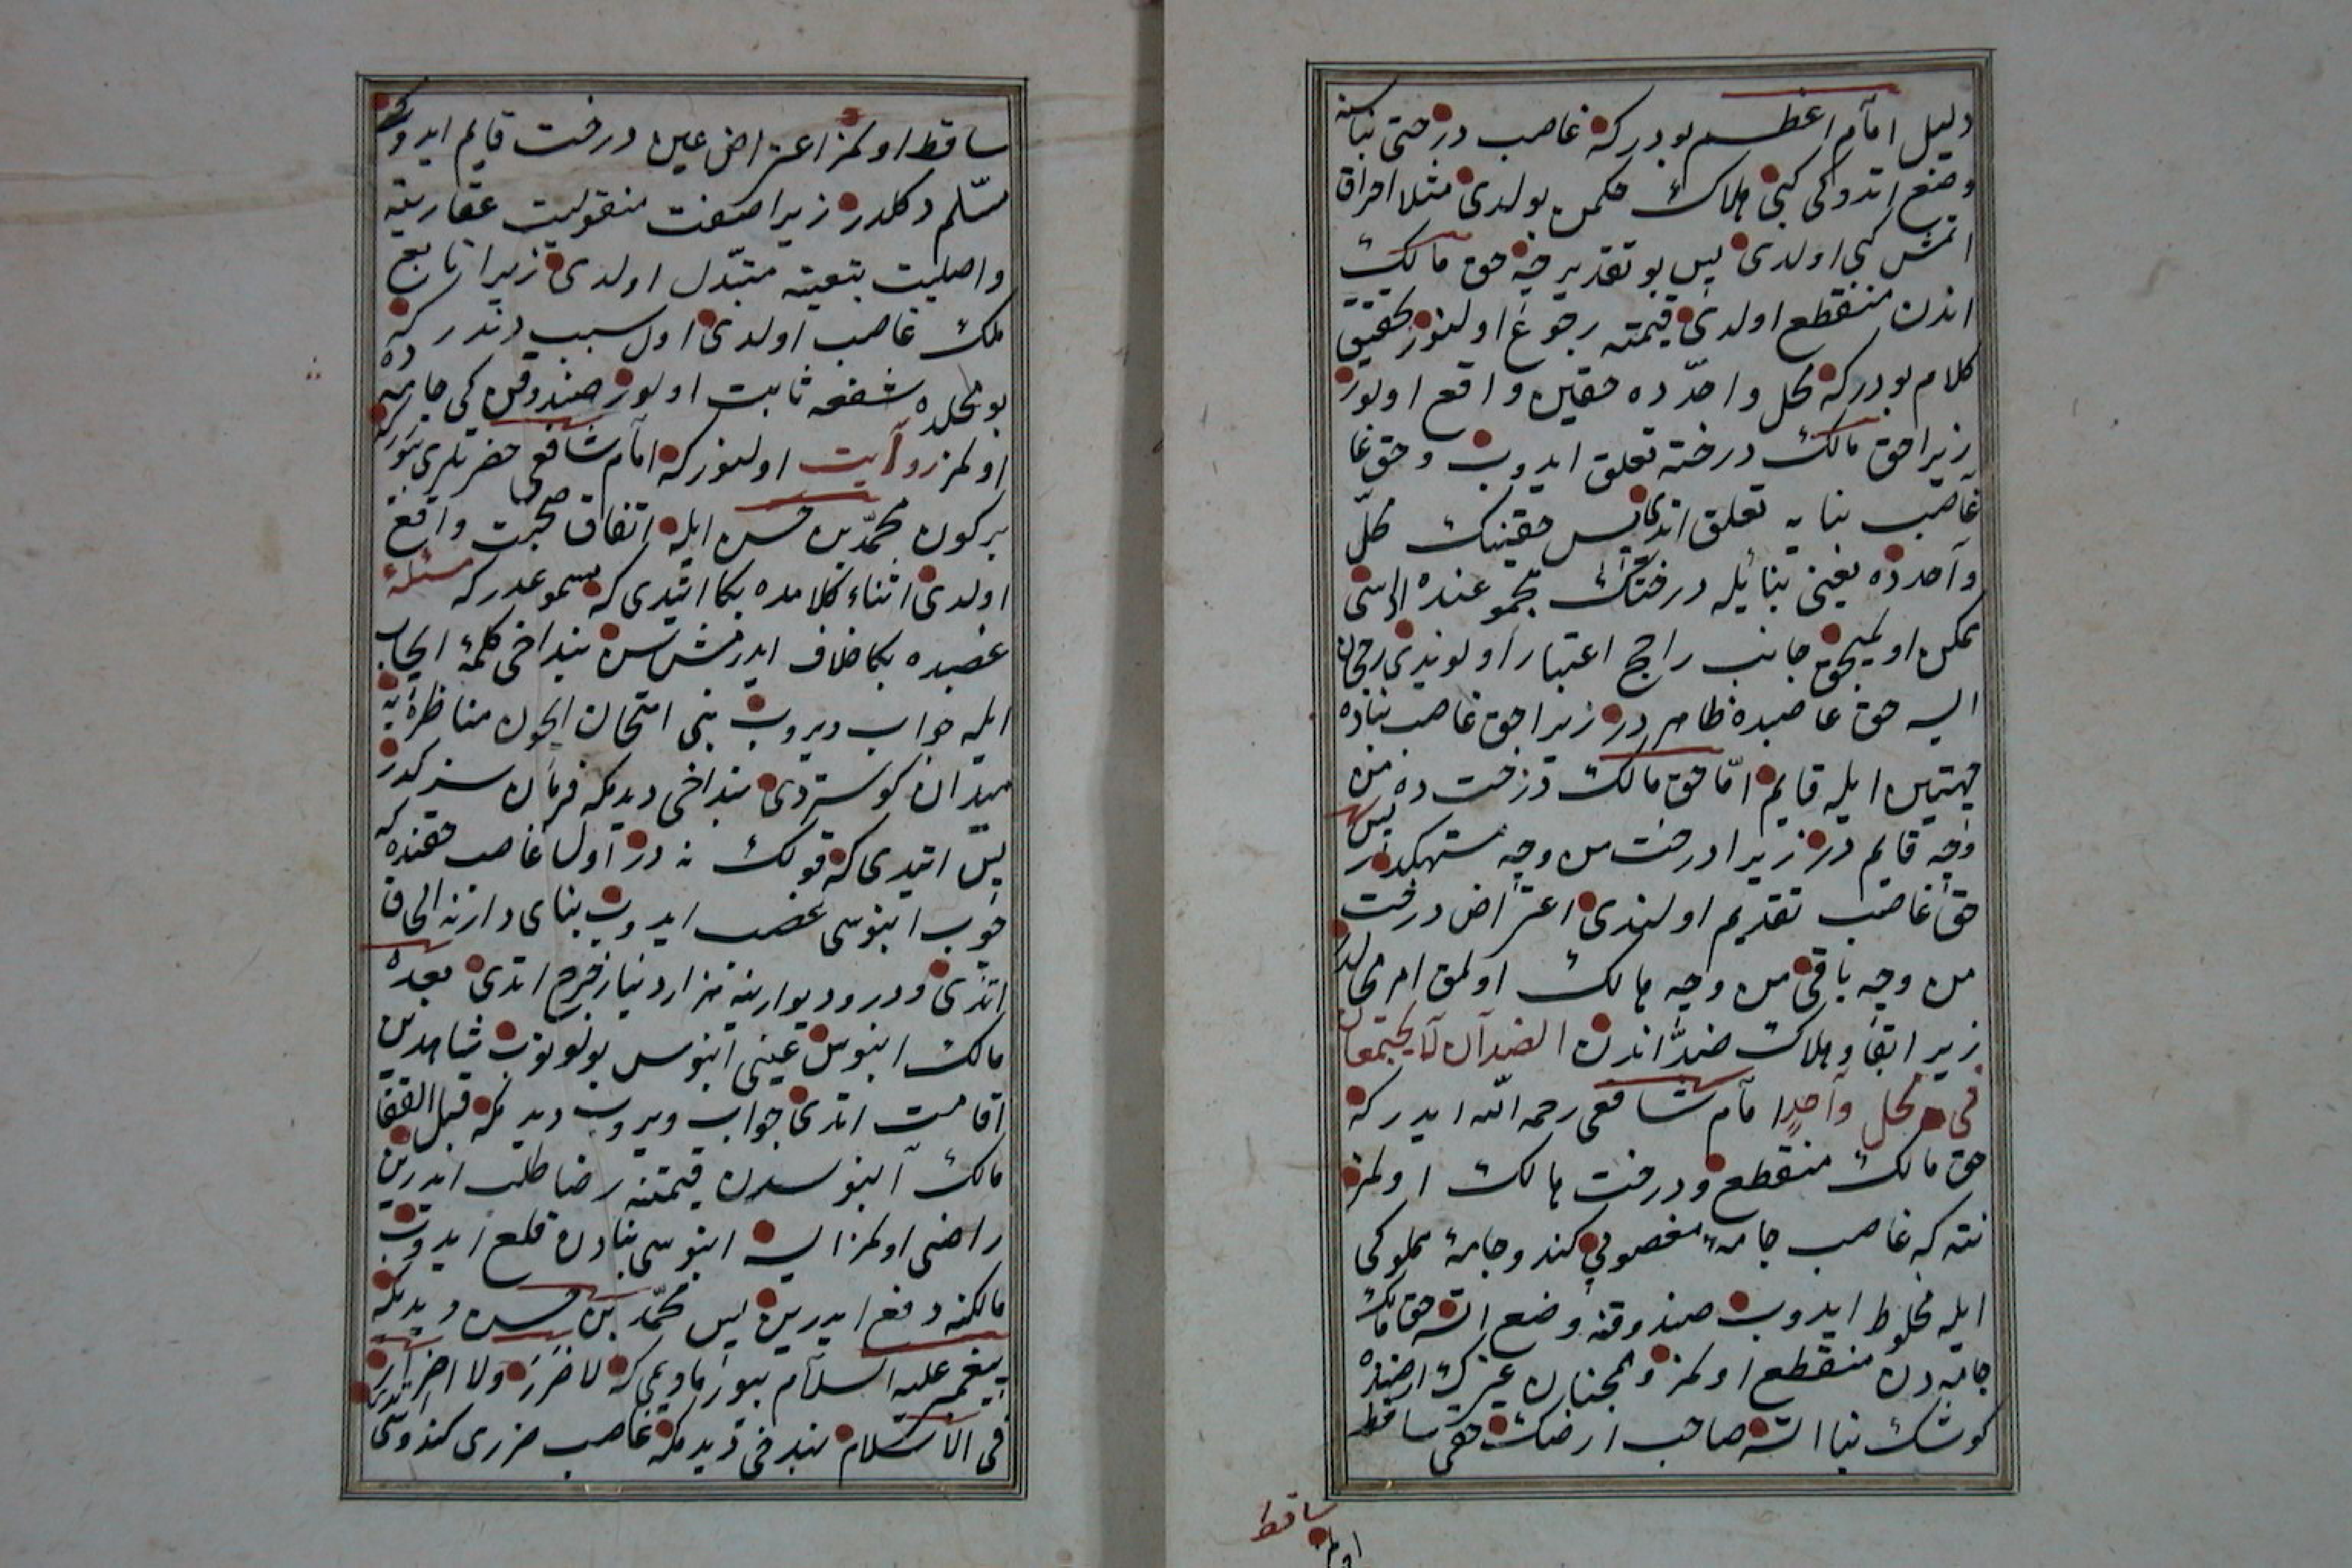 دليل امام اعظم بودركه غاصب درختى بناسنه
وضع اتدوكى كبى هلاك حكمن بولدى مثلا احراق
اتمش كبى اولدى پس بو تقديرجه حق مالك
اندن منقطع اولدى قيمته رجوع اولنور تحقيق
كلام بودركه محل واحدده حقين واقع اولور
زيرا حق مالك درخته تعلق ايدوب وحق غا
غاصب بنايه تعلق اتدى پس حقينك محل
واحدده يعنى بنا يله درختك مجموعنده اراسى
ممكن اولميجق جانب راجح اعتبار اولوندى رجحان
ايسه حق غاصبده ظاهردر زيرا حق غاصب بناده
جهتين ايله قايم اما حق مالك درخت ده من
وجه قايم در زيرا درخت من وجه مستهلكدر پس
حق غاصب تقديم اولندى اعتراض درخت
من وجه باقى من وجه هالك اولمق امر محالدر
زيرا ابقا وهلاك ضد اندن الضدان لا يجتمعان
فى محل واحد امام شافعى رحمه الله ايدركه
حق مالك منقطع ودرخت هالك اولمز
نته كه غاصب جامهٔ مغصوبى كند وجامهٔ مملوكى
ايله مخلوط ايدوب صندوقنه وضع اتسه حق مالك
جامه دن منقطع اولمز وهمچنان غيرك ارضنده
كوشك بنا اتسه صاحب ارضك حقى ساقط
ساقط
اولمز
ساقط اولمز اعتراض عين درخت قايم ايدوكى
مسلم دكلدر زيرا صفت منقوليت عقاريته
واصليت تبعيته متبدل اولدى زيرا تابع
ملك غاصب اولدى اول سبب دندر كه
بو محلده شفعه ثابت اولور صندوقن كى جامه ده
اولمز روايت اولنور كه امام شافعى حضرتلرى بيورركه
بركون محمد بن حسن ايله اتفاق صحبت واقع
اولدى اثناء كلامده بكا ايتدى كه مسموعدركه مسئلهٔ
غصبده بكا خلاف ايدرمش سن بنداخى كلمهٔ ايجاب
ايله جواب ديروب بنى امتحان ايچون مناظره يه
ميدان كوستردى بنداخى ديدمكه فرمان سزكدر
پس ايتدى كه قولك نه در اول غاصب حقنده كه
خوب ابنوسى غصب ايدوب بناى دارنه الحاق
اتدى ودر وديوارينه هزار دينار خرج اتدى بعده
مالك ابنوس عينى ابنوس بولوب شاهدين
اقامت اتدى جواب ويروب ديدمكه قبل القضا
مالك ابنوسدن قيمتنه رضا طلب ايدرين
راضى اولمز ايسه ابنوسى بنادن قلع ايدوب
مالكنه دفع ايدرين پس محمد بن حسن ديدكه
پيغمبر عليه السلام بيورمادى مى كه لا ضرر ولا اضرار
فى الاسلام بندخى ديدمكه غاصب ضررى كندوسى